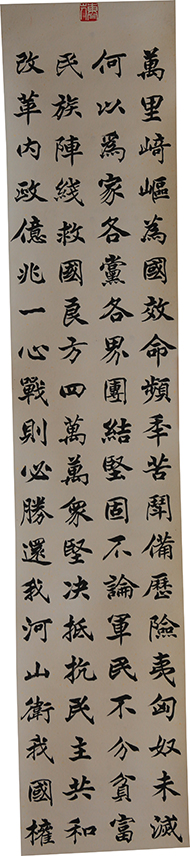 萬里崎嶇為國效命頻年苦鬪備歷險夷匈奴未滅
何以為家各黨各界團結堅固不論軍民不分貧富
民族陣綫救國良方四萬萬衆堅決抵抗民主共和
改革內政億兆一心戰則必勝還我河山衛我國權